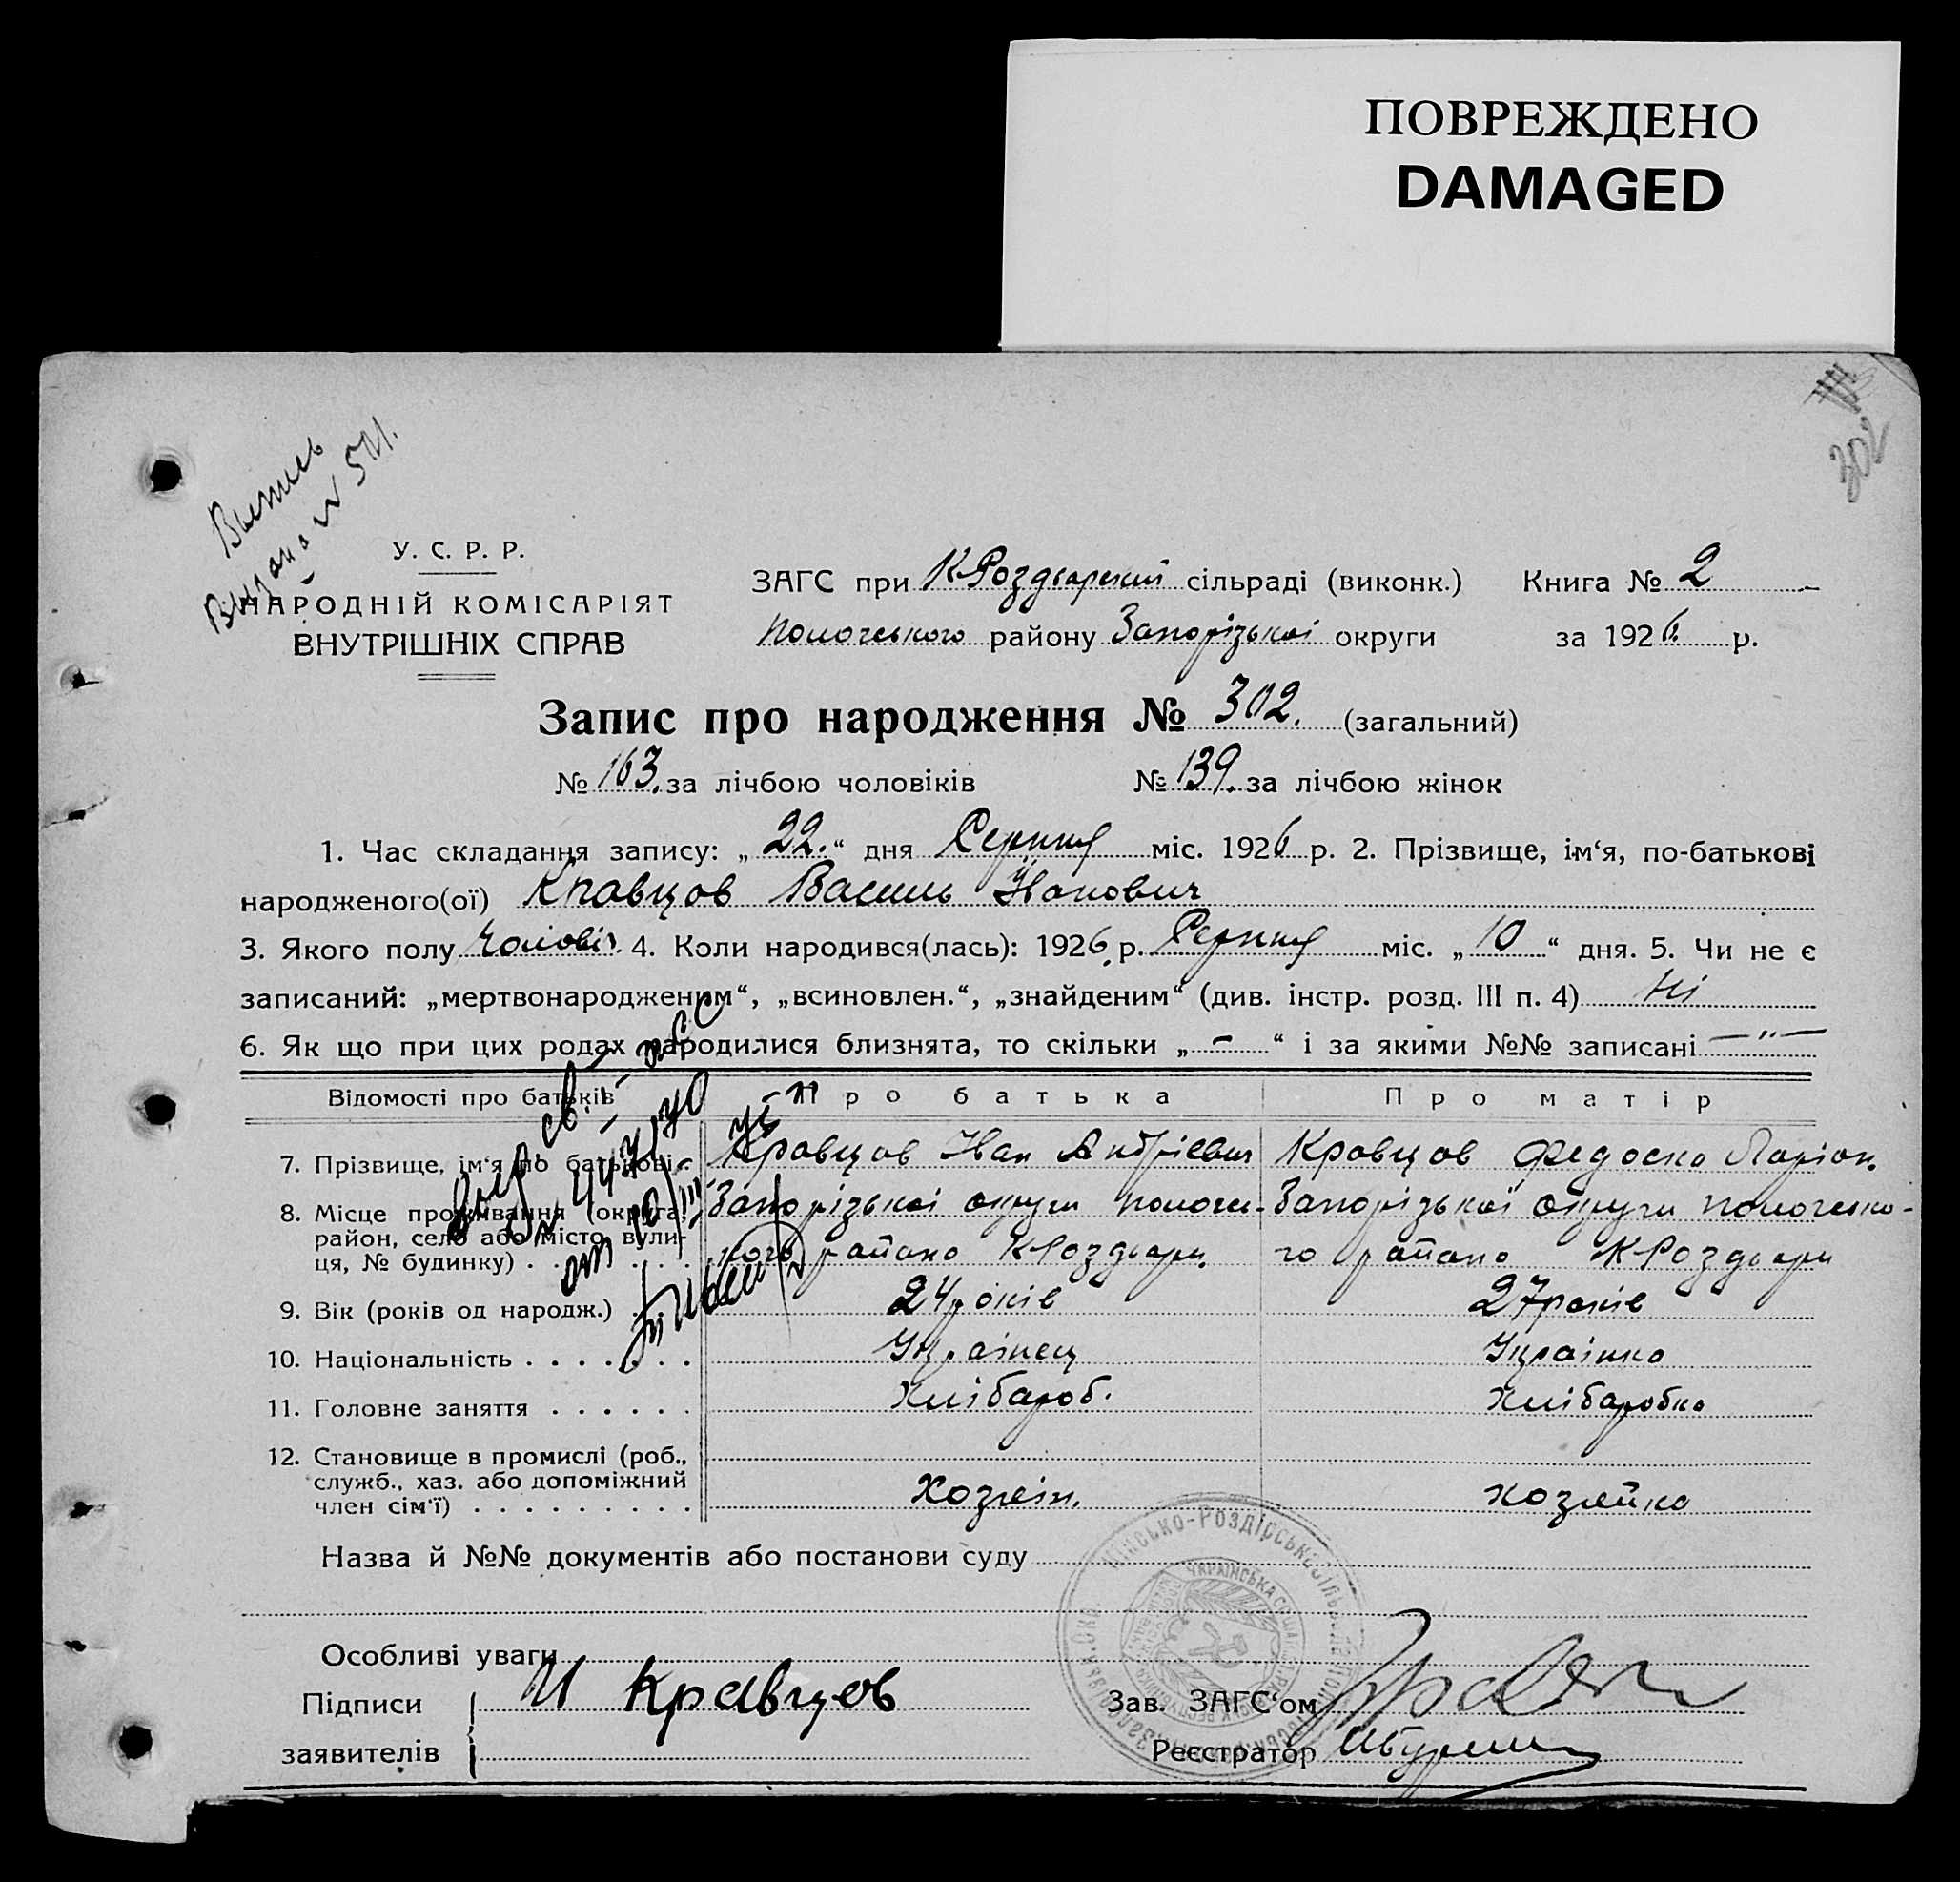 ПОВРЕЖДЕНО
DAMAGED
302
У. С. Р. Р.
НАРОДНІЙ КОМІСАРІЯТ
ВНУТРІШНІХ СПРАВ
ЗАГС при К Роздорській сільраді (виконк.) Книга № 2
Пологського району Запорізької округи за 1926 р.
Запис про народження № 302. (загальний)
№ 163. за лічбою чоловіків № 139. за лічбою жінок
1. Час складання запису: „22.“ дня Серпня міс. 1926 р. 2. Прізвище, ім‘я, по-батькові
народженого(ої) Кравцов Василь Іванович
3. Якого полу Чоловіч. 4. Коли народився(лась): 1926 р. Серпня міс. „10“ дня. 5. Чи не є
записаний: „мертвонародженим“, „всиновлен.“, „знайденим“ (див. інстр. розд. III п. 4) Ні
6. Як що при цих родах народилися близнята, то скільки „ - “ і за якими №№ записані — " —
Відомості про батьків Про батька Про матір
7. Прізвище, ім‘я по батькові Кравцов Іван Андрієвич Кравцов Федоска Ларіон.
8. Місце проживання (округа, Запорізької округи Пологсь- Запорізької округи Пологсько-
район, село або місто, вули- кого району К Роздори. го району К Роздори
ця, № будинку)
9. Вік (років од народж.) 24 років 27 років
10. Національність Українец Українка
11. Головне заняття Хлібароб. Хлібаробка
12. Становище в промислі (роб.,
служб., хаз. або допоміжний
член сім‘ї) Хозяїн. хозяйка
Назва й №№ документів або постанови суду
Особливі уваги
Підписи И Кравцов Зав. ЗАГС‘ом
заявителів Реєстратор